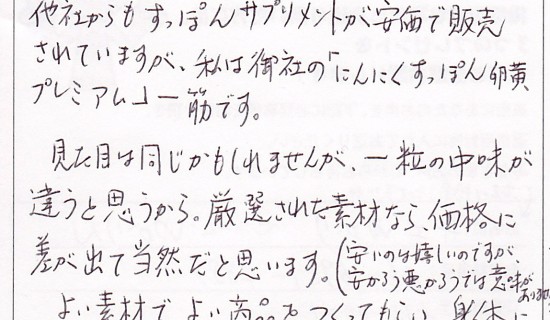 他社からもすっぽんサプリメントが安価で販売
されていますが、私は御社の「にんにくすっぽん卵黄
プレミアム」一筋です。
見た目は同じかもしれませんが、一粒の中味が
違うと思うから。厳選された素材なら、価格に
差が出て当然だと思います。(安いのは嬉しいのですが、
安かろう悪かろうでは意味が
ありません
よい素材で、よい商品をつくってもらい、身体に